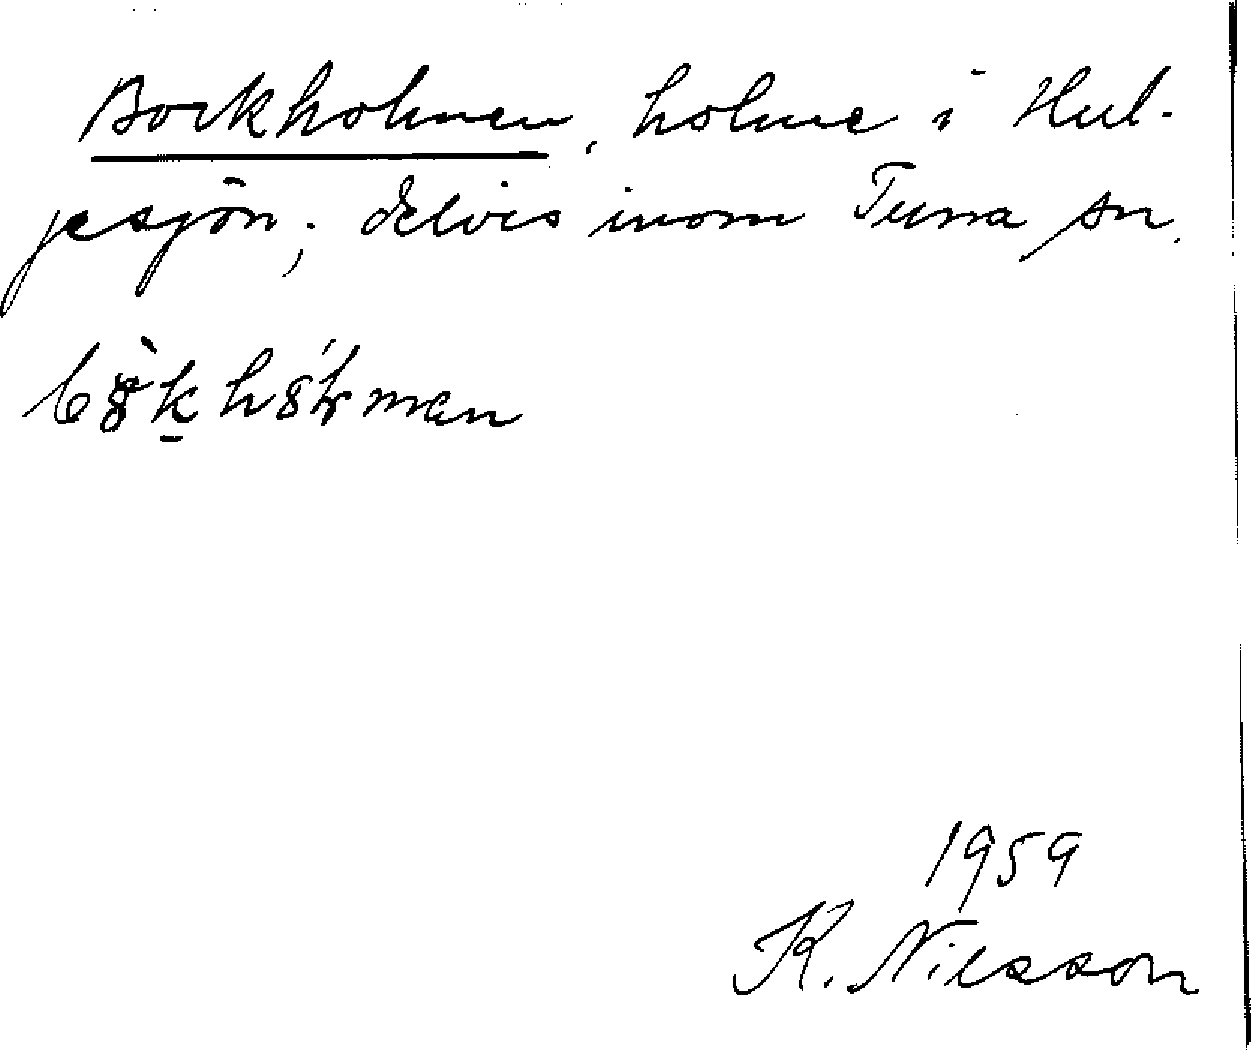 Bockholmen, holme i Hul-
jesjön; delvis inom Tuna sn.
1959
K. Nilsson